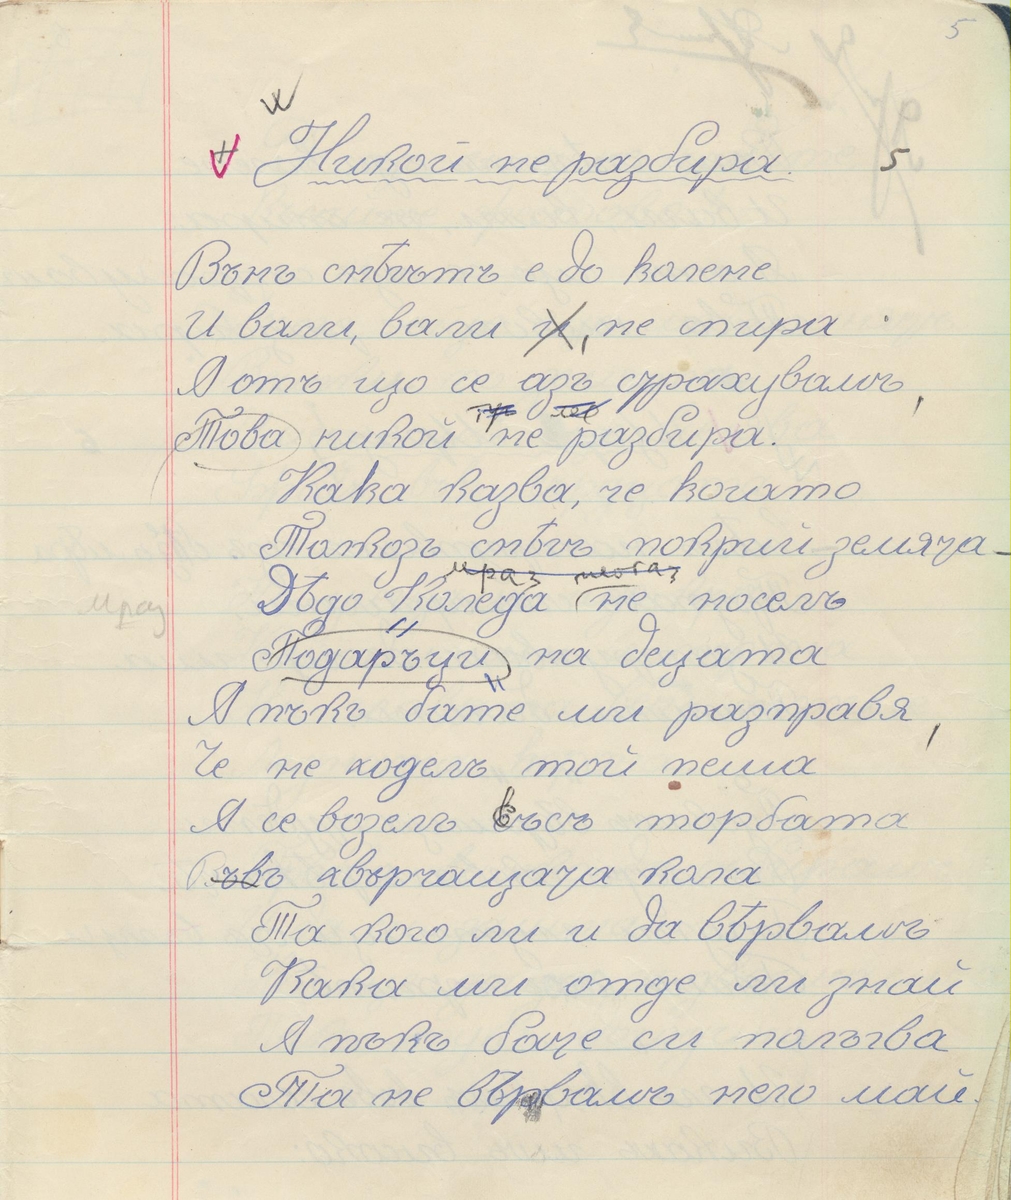 5
Никой не разбира.
5
Вънъ снѣгътъ е до колене
И вали, вали и, не спира
А отъ що се азъ страхувамъ,
Това никой не разбира.
Кака казва, че когато
Толкозъ снѣгъ покрий земята
мраз
Дѣдо Коледа не носелъ
мраз
Подаръци на децата
А пъкъ бате ми разправя,
Че не ходелъ той пеша
А се возелъ със торбата
Във хвърчащата кола
Та кого ли и да вѣрвамъ
Кака ми отде ли знай
А пъкъ бате си полъгва
Та не вѣрвамъ него май.